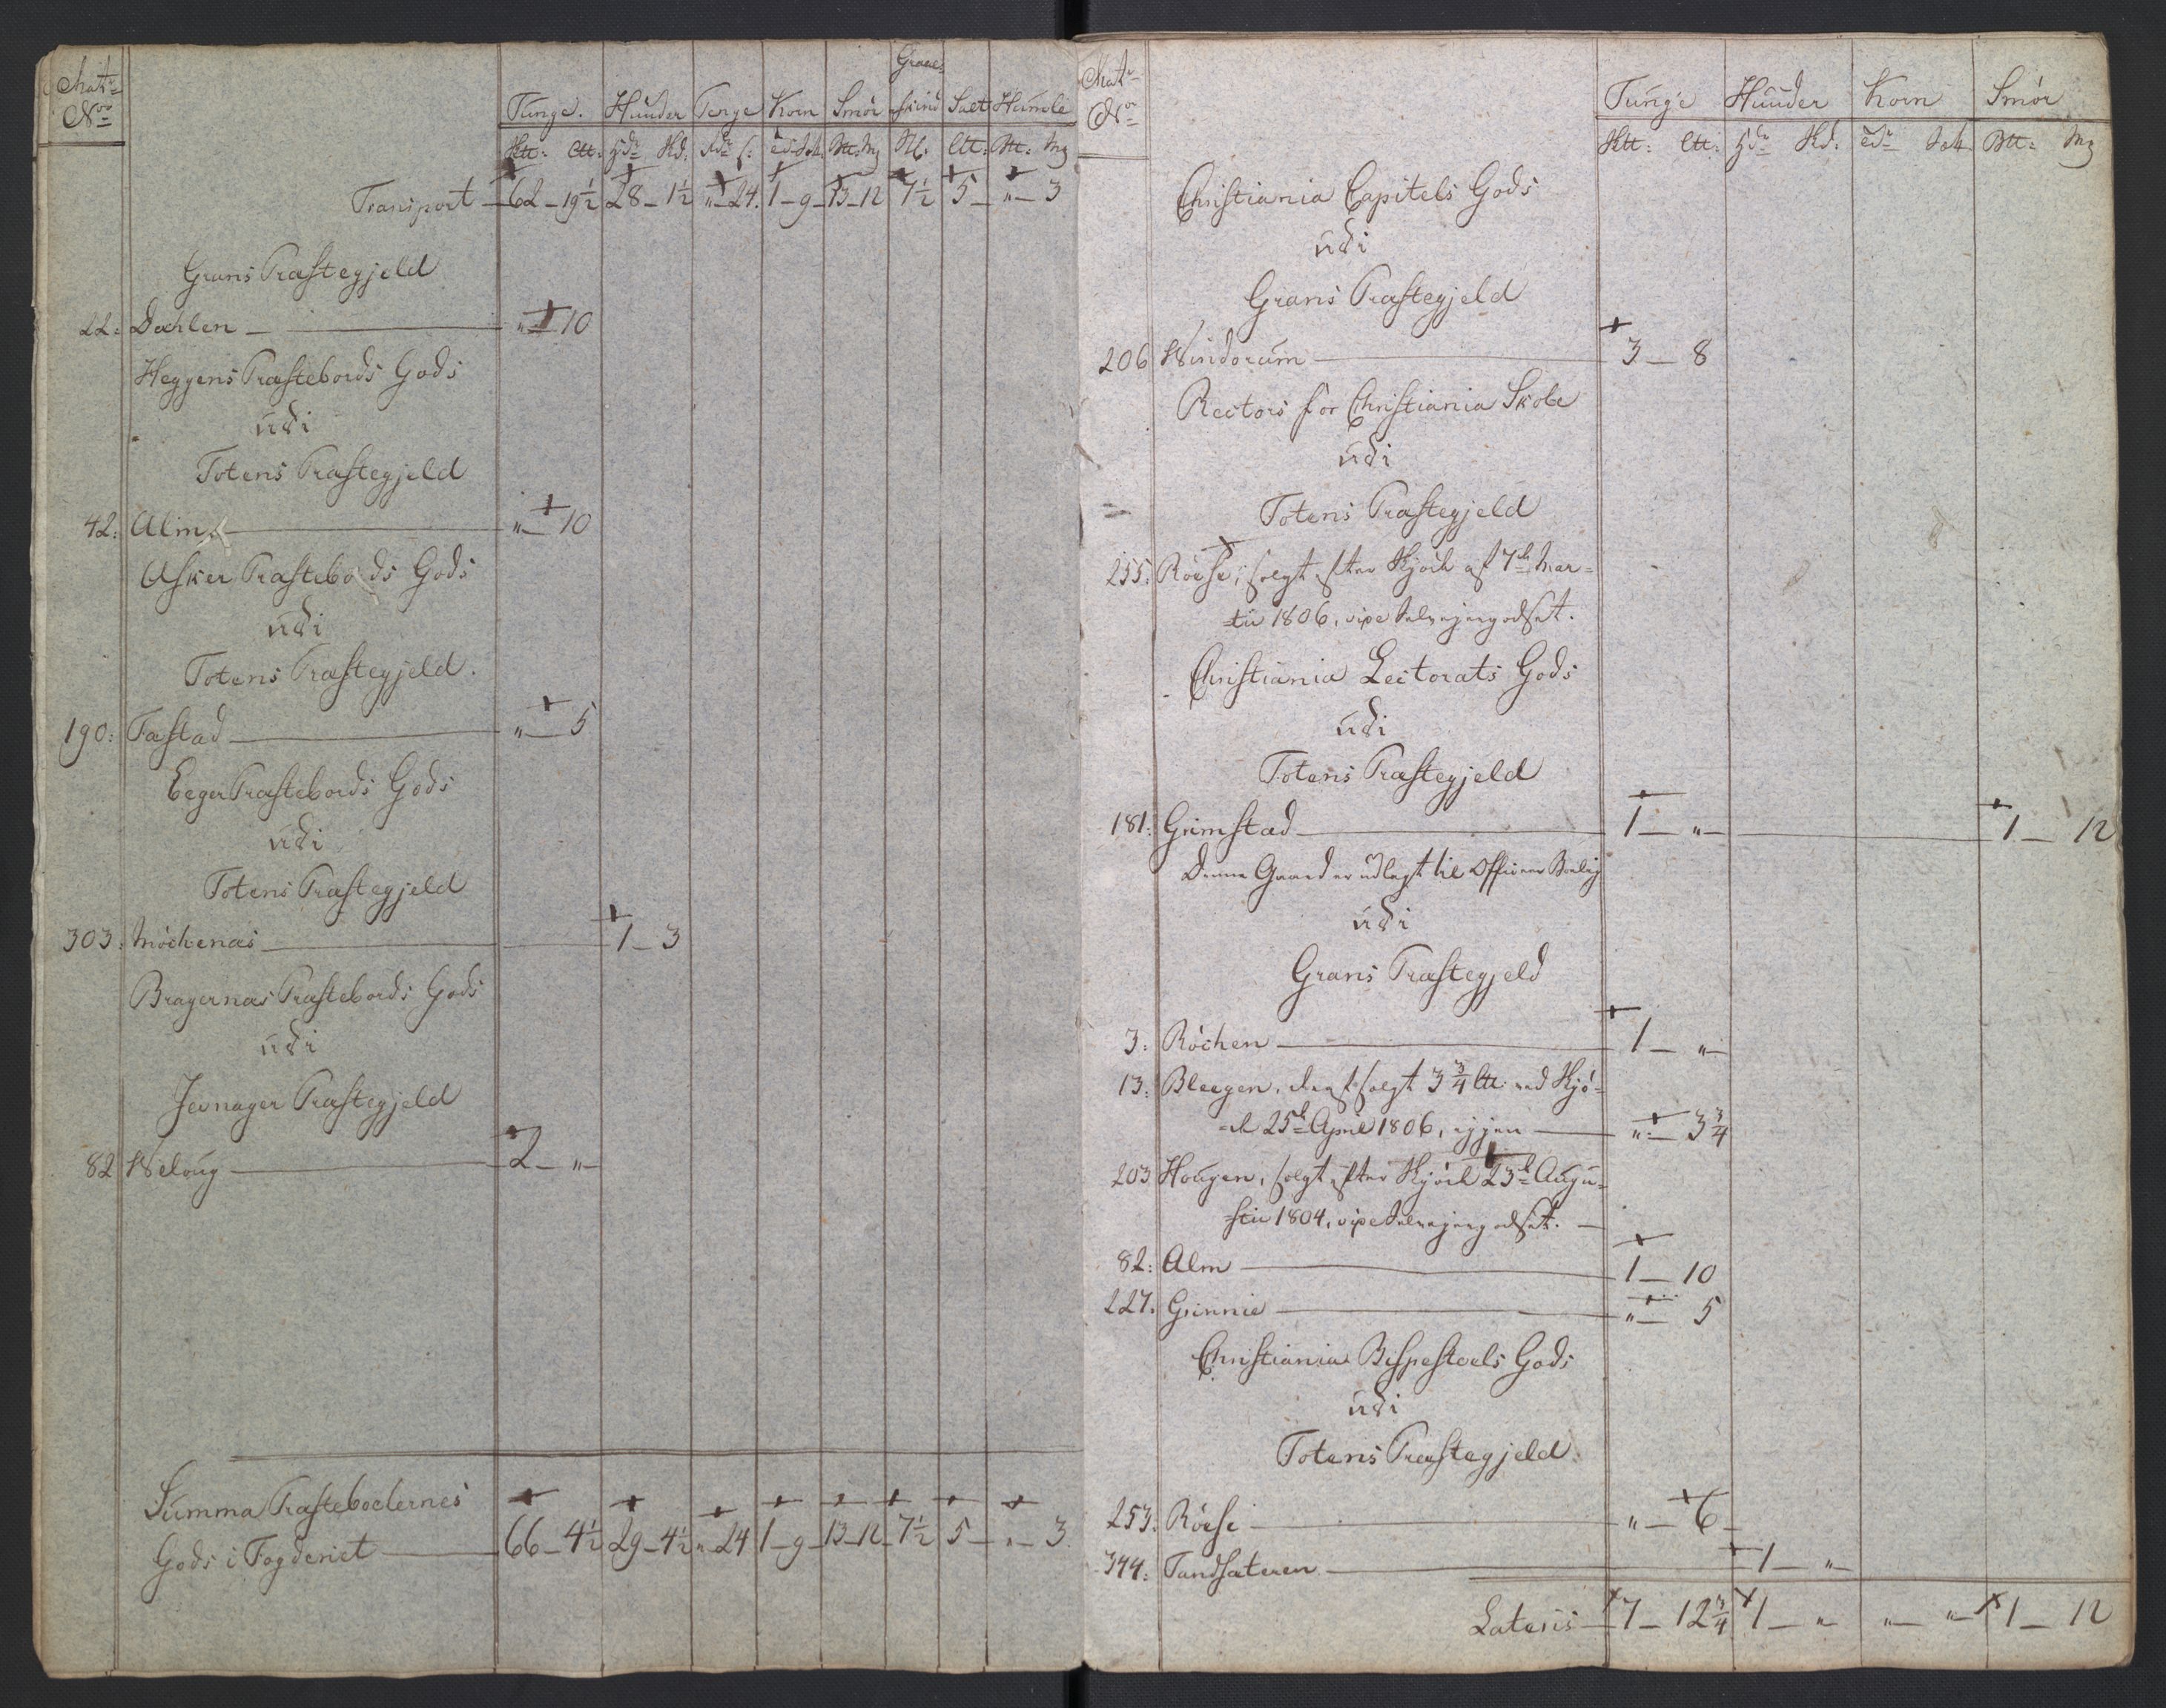 Matr
No
Tunge. Huuder Penge Korn Smör Graae-skind Salt Humle
Sktt: Ltt: Hdr Skd. Rdr s: Mk: Mg Stk. Ltt: Mg
Transport — 62 — 19½ 28 — 1½ „ — 24. 1 — 9 — 13 — 12 7½ 5 — „ — 3
Grans Præstegjeld
22: Dæhlen — „ — 10
Heggens Præstebords Gods
udi
Totens Præstegjeld
42: Alm — „ — 10
Asker Præstebords Gods
udi
Totens Præstegjeld.
190: Fastad — „ — 5
Eeger Præstebords Gods
udi
Totens Præstegjeld
303: Möchenæs — 1 — 3
Bragernæs Præstebords Gods
udi
Jevnager Præstegjeld
82 Weloug — 2 — „ —
Summa Præsteboelernes
Gods i Fogderiet — 66 — 4½ 29 — 4½ „ 24 1 — 9 — 13 — 12 — 7½ 5 — „ — 3.
Matr
No
Tunge Huuder Korn Smör
Sktt: Ltt: Hdr Skd: Mg
Christiania Capitels Gods
udi
Grans Præstegjeld
206 Windorum — 3 — 8
Rectors for Christiania Skole
udi
Totens Præstegjeld
255: Röese, solgt efter Skjöde af 7de Mar-
-tii 1806, vide Selvejergodset.
Christiania Lectorats Gods
udi
Totens Præstegjeld
181: Grimstad — 1 — „ — 1 — 12
Denne Gaard er udlagt til Officeer Boelig
udi
Grans Præstegjeld
3: Röchen — 1 — „ —
13: Bleegen, deraf solgt 3¾ Ltt: ved Skjö-
-de 25de April 1806, igjen — „ — 3¾
203 Hougen, solgt efter Skjöde 23de Augu-
-stii 1804, vide Selvejergodset. —
82: Alm — 1 — 10
227. Grinnie — „ — 5
Christiania Bispestoels Gods
udi
Totens Præstegjeld.
253: Röese — „ — 6 —
344: Tandsæteren — 1 — „
Lateris — 7 — 12¾ 1 — „ „ — „ — 1 — 12